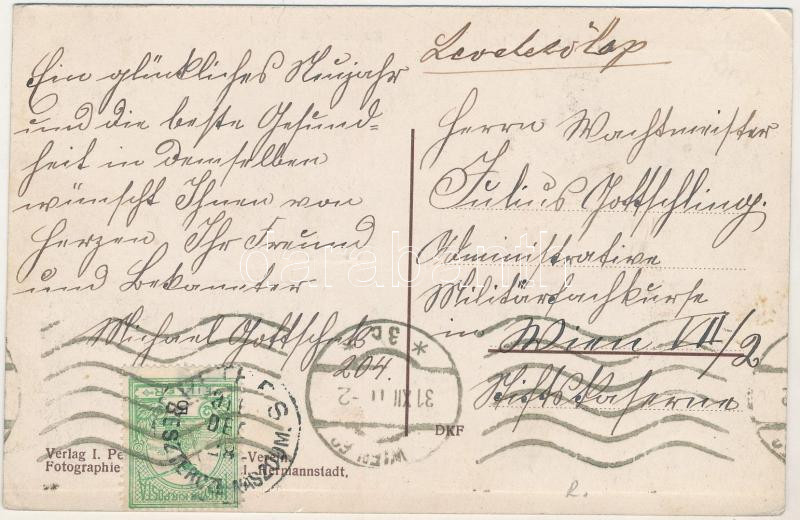 Levelezőlap
Ein glückliches Neujahr
und die beste Gesund=
heit in demselben
wünscht Ihnen von
Herzen Ihr Freund
und Bekannter
Michael Gottschets
204.
Herrn Wachtmeister
Julius Gottschling.
Administrative
Militärfachkurse
in Wien VII/2
Stiftskaserne
3c *
31 XII 11 - 2
WIEN
DKF
BESZTERCZE-NASZÓD M.
Verlag I.
Fotographie
-Verein
Hermannstadt.
R.
darabanth